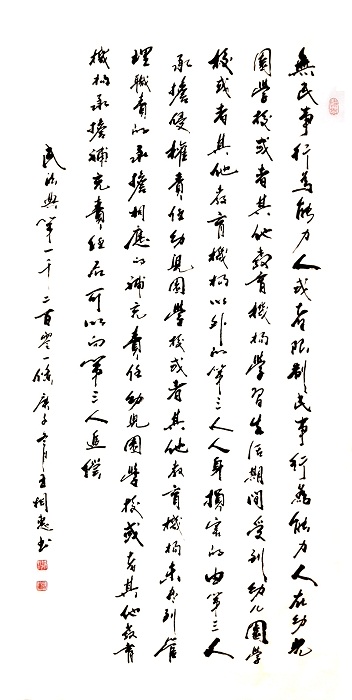 無民事行為能力人或者限制民事行為能力人在幼兒
園學校或者其他教育機構學習生活期間受到幼儿園學
校或者其他教育機構以外的第三人人身損害的由第三人
承擔侵權責任幼兒園學校或者其他教育機構未尽到管
理職責的承擔相應的補充責任幼兒園學校或者其他教育
機構承擔補充責任后可以向第三人追償
民法典第一千二百零一條庚子書